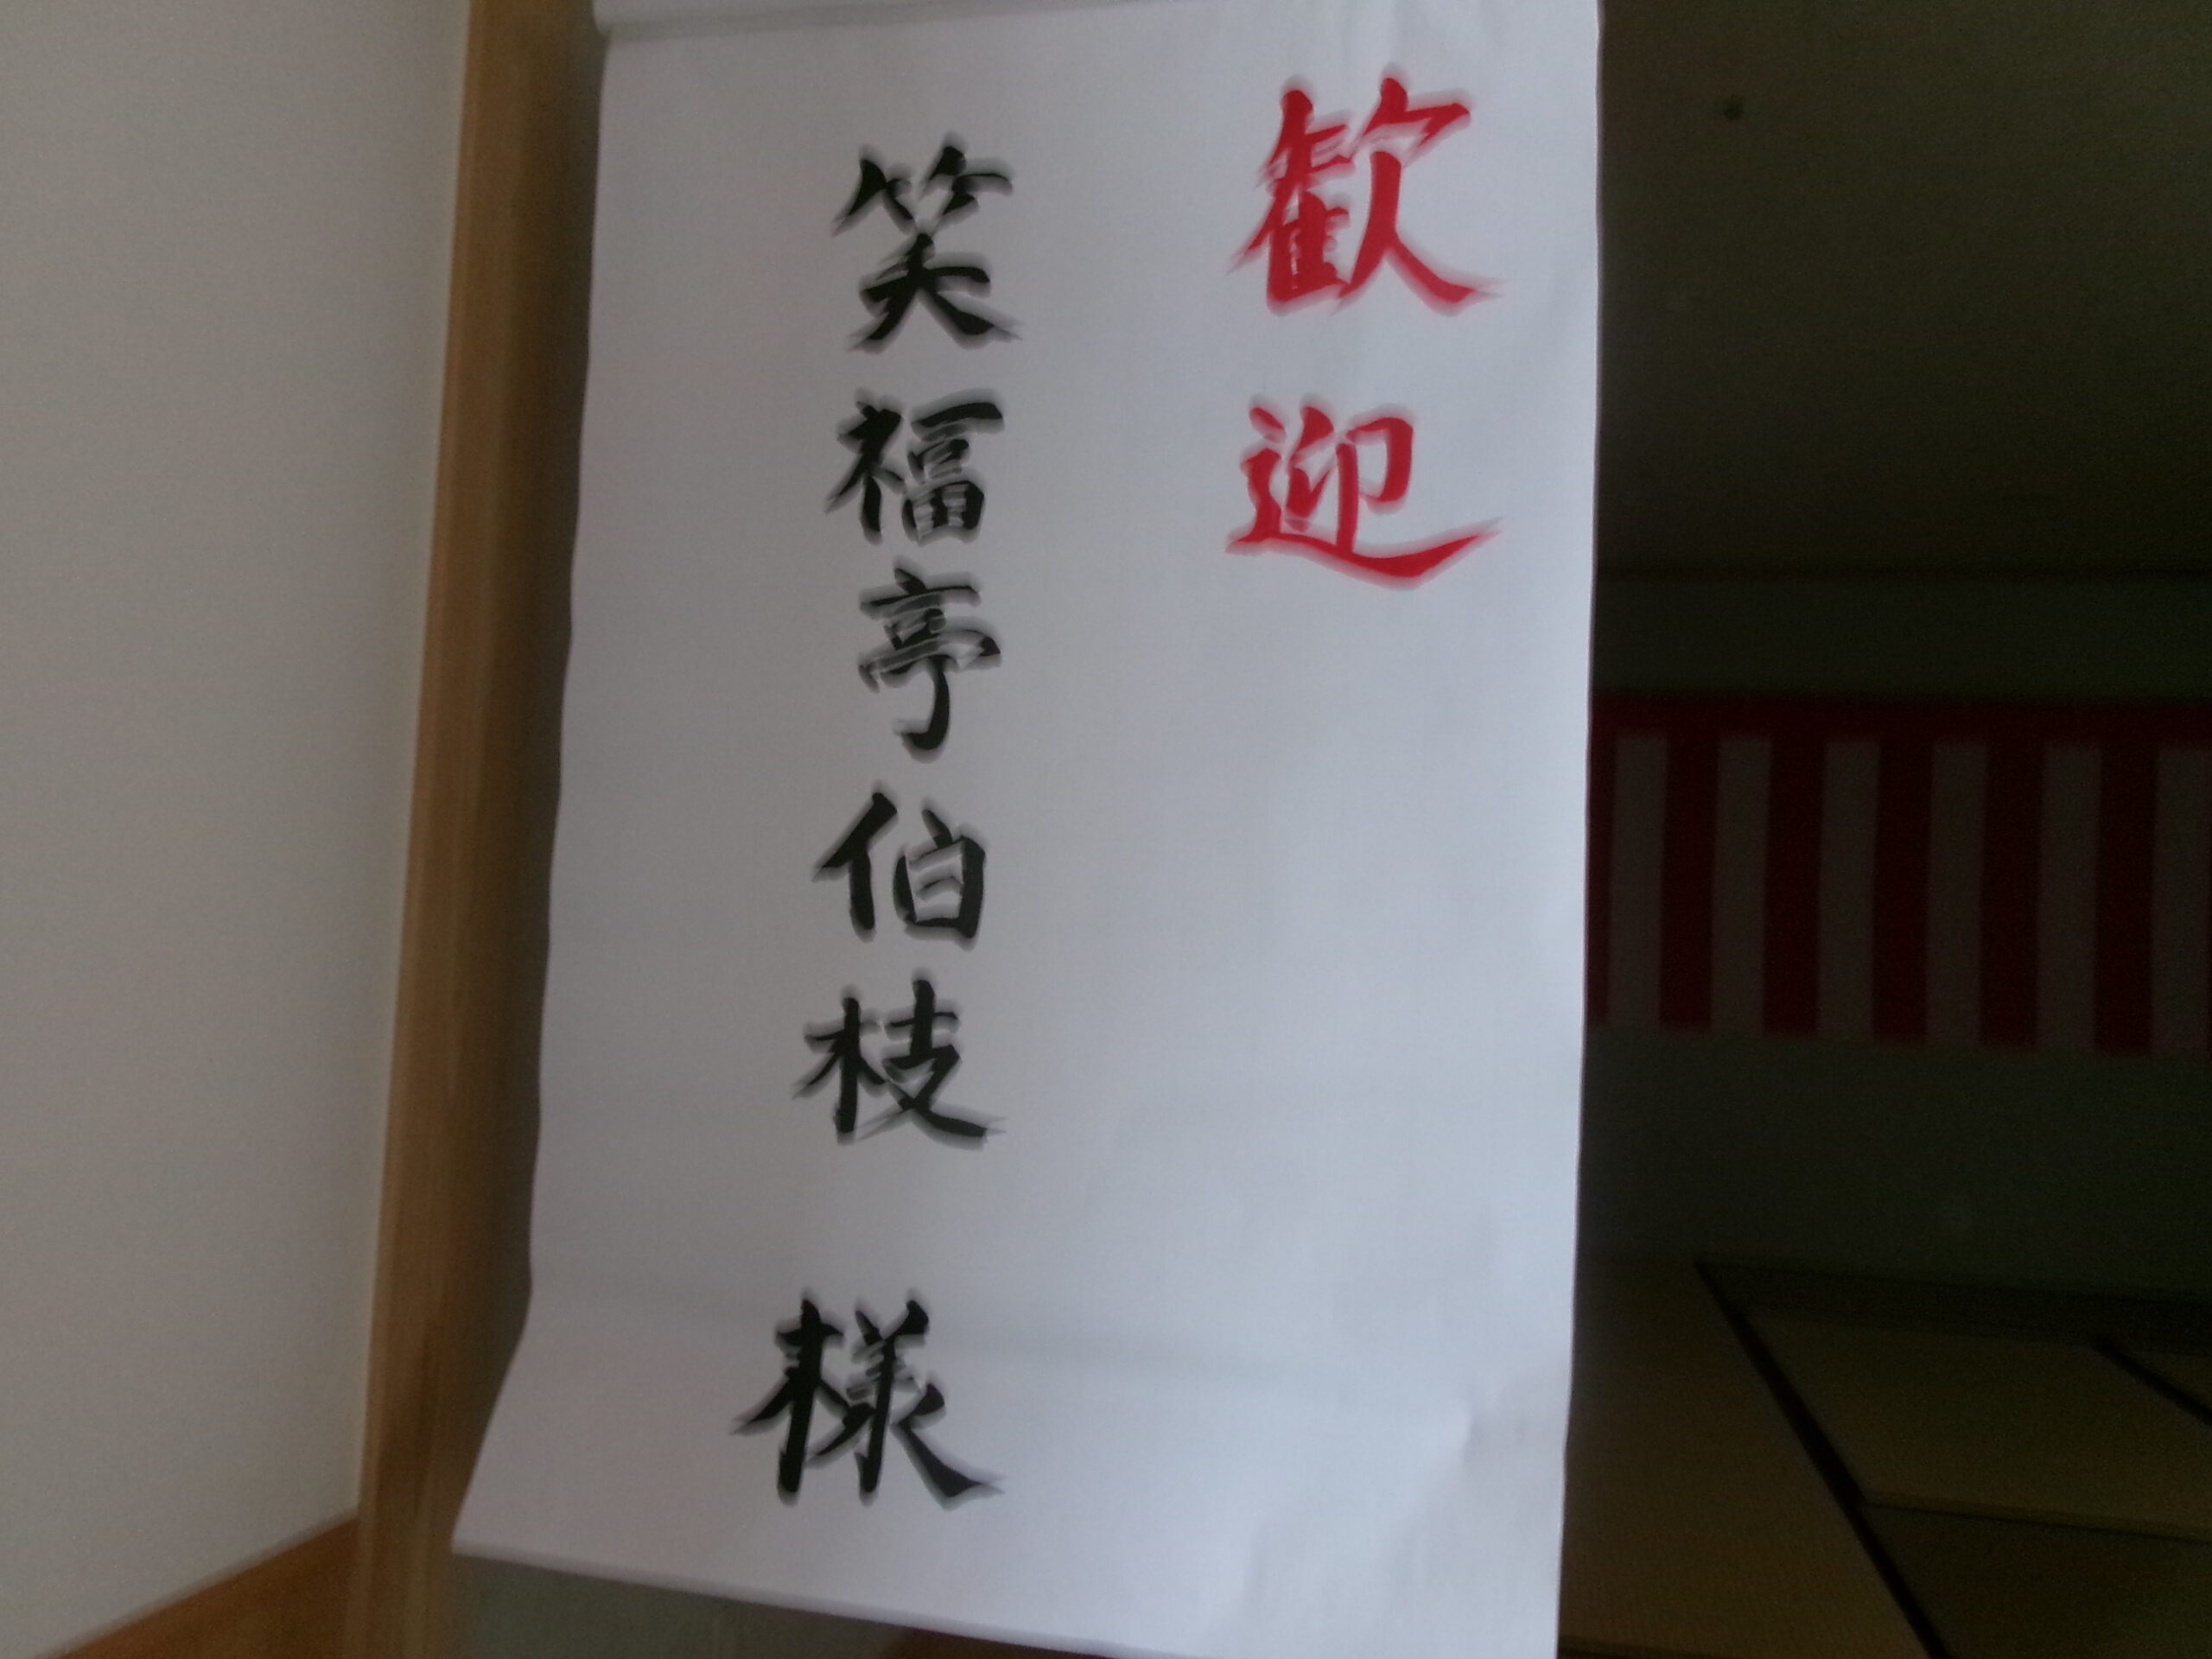 歓迎
笑福亭伯枝 様